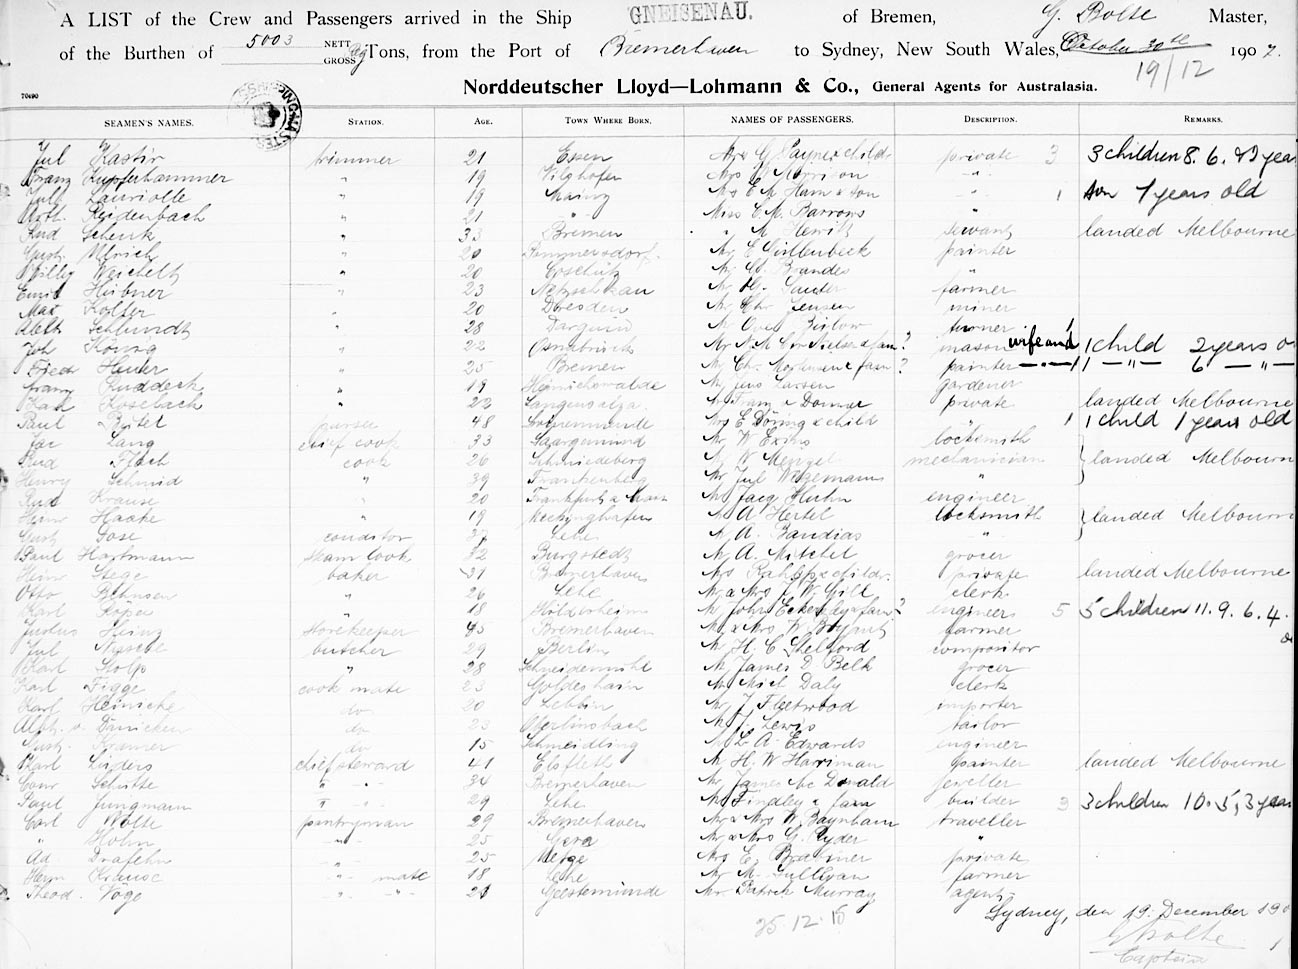 A LIST of the Crew and Passengers arrived in the Ship GNEISENAU. of Bremen, G. Bolte Master,
of the Burthen of 5003 NETT GROSS Reg Tons, from the Port of Bremerhaven to Sydney, New South Wales, October 30th 1907.
19/12
Norddeutscher Lloyd—Lohmann & Co., General Agents for Australasia.
70490
SEAMEN'S NAMES. STATION. AGE. TOWN WHERE BORN. NAMES OF PASSENGERS. DESCRIPTION. REMARKS.
Jul Kastir trimmer 21 Essen Mrs G Payne & childr private 3 3 children 8. 6. & 2 year
Franz Kupferhammer " 19 Vilshofen Mrs Morrison "
Jul Lauriolle " 19 Mainz Mrs E M Ham & son 1 son 7 years old
Arth. Reidenbach " 21 " Miss E. M. Barrows "
Rud Schenk " 33 Bremen " M Hewitt servant landed Melbourne
Gust. Ullrich " 20 Mr E Grillenbeck painter
Willy Weichelt " 20 Mr Brandes "
Emil Hübner " 23 Netzschkau Mr Sauter farmer
Max Kotter " 20 Dresden Mr Chr Jensen miner
Schlundt " 28 Dargun Mr Oved Bülow turner
Joh König " 22 Osnabrück Mr Nielsen & fam ? mason wife and 1 child 2 years o
Friedr Huter " 25 Bremen Mr Chr. & fam ? painter 1 — " — 6 — " —
Franz Ruddeck " 19 Heinrichswalde Mr Jens Larsen gardener
Karl Rosebach " 22 Langensalza Mr Franz Donner private landed Melbourne
Paul Ristel purser 48 Swinemünde Mrs E Döring & child " 1 1 child 1 years old
Jac Lang chief cook 33 Saargemünd Mr W Exins locksmith
Rud Floch cook 26 Schmiedeberg Mr W Menzel mechanician landed Melbourn
Henry Schmid " 39 Frankenberg Mr Jul Wegemann "
Rud Krause " 20 Frankfurt a Main Mr Jacq Huhn engineer
Heinr Haake " 19 Mr A Hertel locksmith landed Melbourn
Gust Jose conditor Lehe Mr A. Bandias "
Paul Hartmann steam cook 32 Burgstedt Mr A. Mitchel grocer
Heinr Stege baker 31 Bremerhaven Mrs & childr. private landed Melbourne
Otto Behnsen " 26 Lehe Mr & Mrs J W Gill clerk
Karl Köper " 18 Holdersheim Mr John Eckersley & fam ? engineers 5 5 children 11. 9. 6. 4.
Justus Heinz storekeeper 45 Bremerhaven Mr & Mrs W Bryant farmer
Jul butcher 29 Berlin Mr H. C Shelford compositor
Karl Stolp " 28 Schneidemühl Mr James D Belk grocer
Karl Figge cook mate 23 Goldeshain Mr Mich Daly clerk
Karl Heinicke do 20 Lebbin Mr J Fleetwood importer
Alph. v. Drunicken do 23 Oberlinsbach Mr J. Lewis tailor
Gust. Kramer do 15 Schmeidling Mr L. A. Edwards engineer
Karl Lüders chief steward 41 Elsfleth Mr H. W Harriman painter landed Melbourne
Conr Schütte " - " - 30 Bremerhaven Mr James Mc Donald jeweller
Paul Jungmann " - " - 29 Lehe Mr Findley & fam builder 3 3 children 10. 5, 3 year
Carl Nolte pantryman 29 Bremerhaven Mr & Mrs W Baynham traveller
" Hohn - " - 25 Gera Mr & Mrs G Ryder "
Ad. Drafehn - " - 25 Mrs E. private
Herm Krause - " - mate 18 Lehe Mr M. Sullivan farmer
Theod. Voge " - " - 21 Geestemünde Mr Patrick Murray agent
25. 12. 15
Sydney, den 19. December 190
G Bolte
Captain